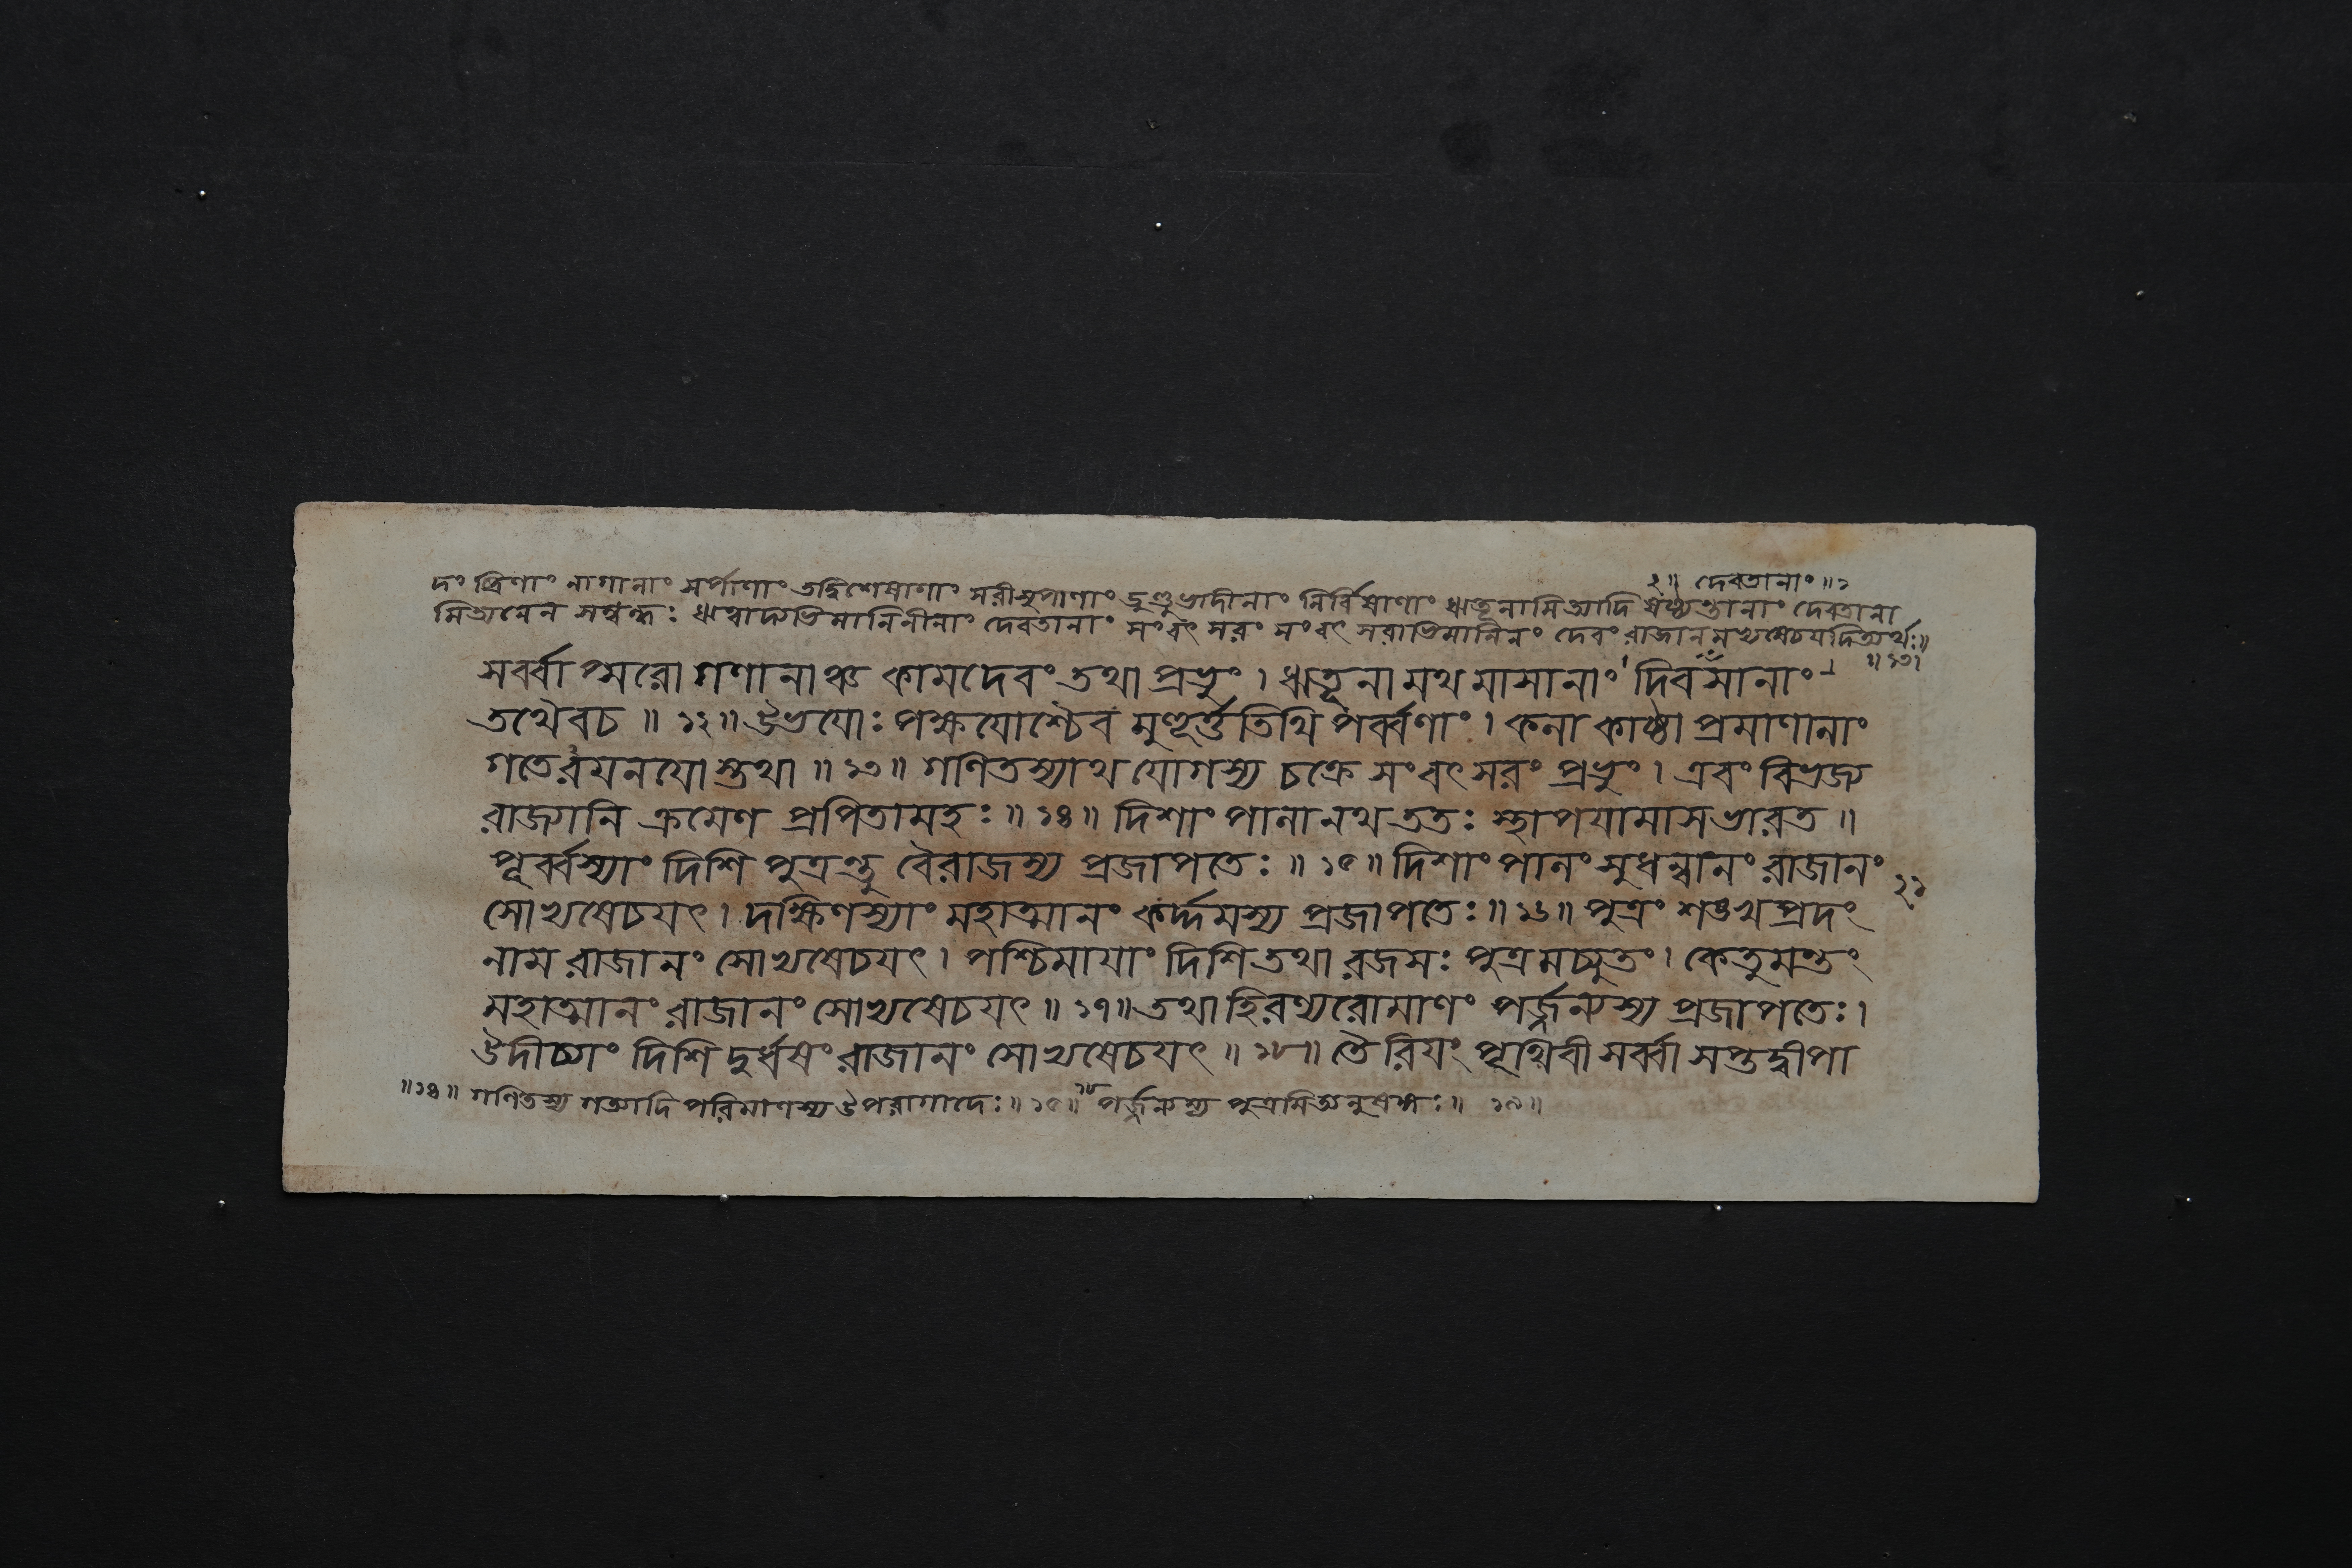 ২॥ দেবতানাং॥১
দংষ্ট্রিণাং নাগানাং সর্পাণাং তদ্বিশেষাণাং সরীসৃপাণাং ডুণ্ডুভাদীনাং নির্বিষাণাং ঋতূনামিত্যাদি ষষ্ঠ্যন্তানাং দেবতানা
মিত্যনেন সম্বন্ধঃ ঋত্বাদ্যভিমানিনীনাং দেবতানাং সংবৎসরং সংবৎসরাভিমানিনং দেবং রাজানমভ্যষেচযদিত্যর্থঃ॥
॥১৩॥
সর্ব্বাপ্সরোগণানাঞ্চ কামদেবং তথা প্রভুং। ঋতূনামথ মাসানাং দিবসানাং
তথৈবচ॥ ১২॥ উভযোঃ পক্ষযোশ্চৈব মুহূর্ত্ততিথিপর্ব্বণাং। কলাকাষ্ঠাপ্রমাণানাং
গতেরযনযোস্তথা॥ ১৩॥ গণিতস্যাথ যোগস্য চক্রে সংবৎসরং প্রভুং। এবং বিভজ্য
রাজ্যানি ক্রমেণ প্রপিতামহঃ॥ ১৪॥ দিশাংপালানথ ততঃ স্থাপযামাস ভারত॥
পূর্ব্বস্যাং দিশি পুত্রন্তু বৈরাজস্য প্রজাপতেঃ॥ ১৫॥ দিশাংপালং সুধন্বানং রাজানং
সোভ্যষেচযৎ। দক্ষিণস্যাং মহাত্মানং কর্দ্দমস্য প্রজাপতেঃ॥ ১৬॥ পুত্রং শঙ্খপদং
২১
নাম রাজানং সোভ্যষেচযৎ। পশ্চিমাযাং দিশি তথা রজসঃ পুত্রমচ্যুতং। কেতুমন্তং
মহাত্মানং রাজানং সোভ্যষেচযৎ॥ ১৭॥ তথা হিরণ্যরোমাণং পর্জ্জন্যস্য প্রজাপতেঃ।
উদীচ্যাং দিশি দুর্ধর্ষং রাজানং সোভ্যষেচযৎ॥ ১৮॥ তৈরিযং পৃথিবী সর্ব্বা সপ্তদ্বীপা
॥১৪॥ গণিতস্য গত্যাদিপরিমাণস্য উপরাগাদেঃ॥ ১৫॥ ১৮ পর্জ্জন্যস্য পুত্রমিত্যনুষঙ্গঃ॥ ১৯॥